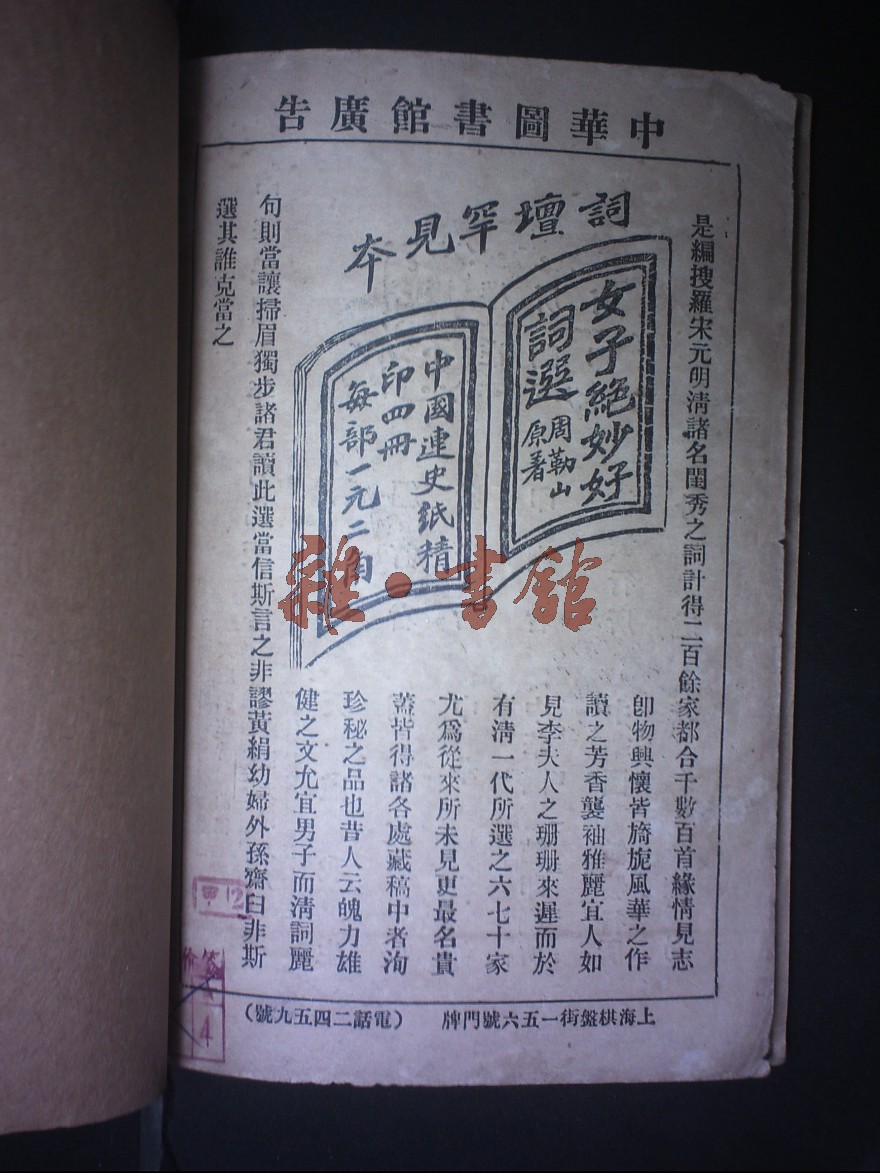 中華圖書館廣告
詞壇罕見本
女子絕妙好
詞選
周勒山
原著
中國連史紙精
印四冊
每部一元二角
是編搜羅宋元明清諸名閨秀之詞計得二百餘家都合千數百首緣情見志
卽物興懷皆旖旎風華之作
讀之芳香襲袖雅麗宜人如
見李夫人之珊珊來遲而於
有清一代所選之六七十家
尤爲從來所未見更最名貴
蓋皆得諸各處藏稿中者洵
珍秘之品也昔人云魄力雄
健之文允宜男子而清詞麗
句則當讓掃眉獨步諸君讀此選當信斯言之非謬黃絹幼婦外孫齋臼非斯
選其誰克當之
上海棋盤街一五六號門牌 （電話二四五九號）
雜·書館
12
4